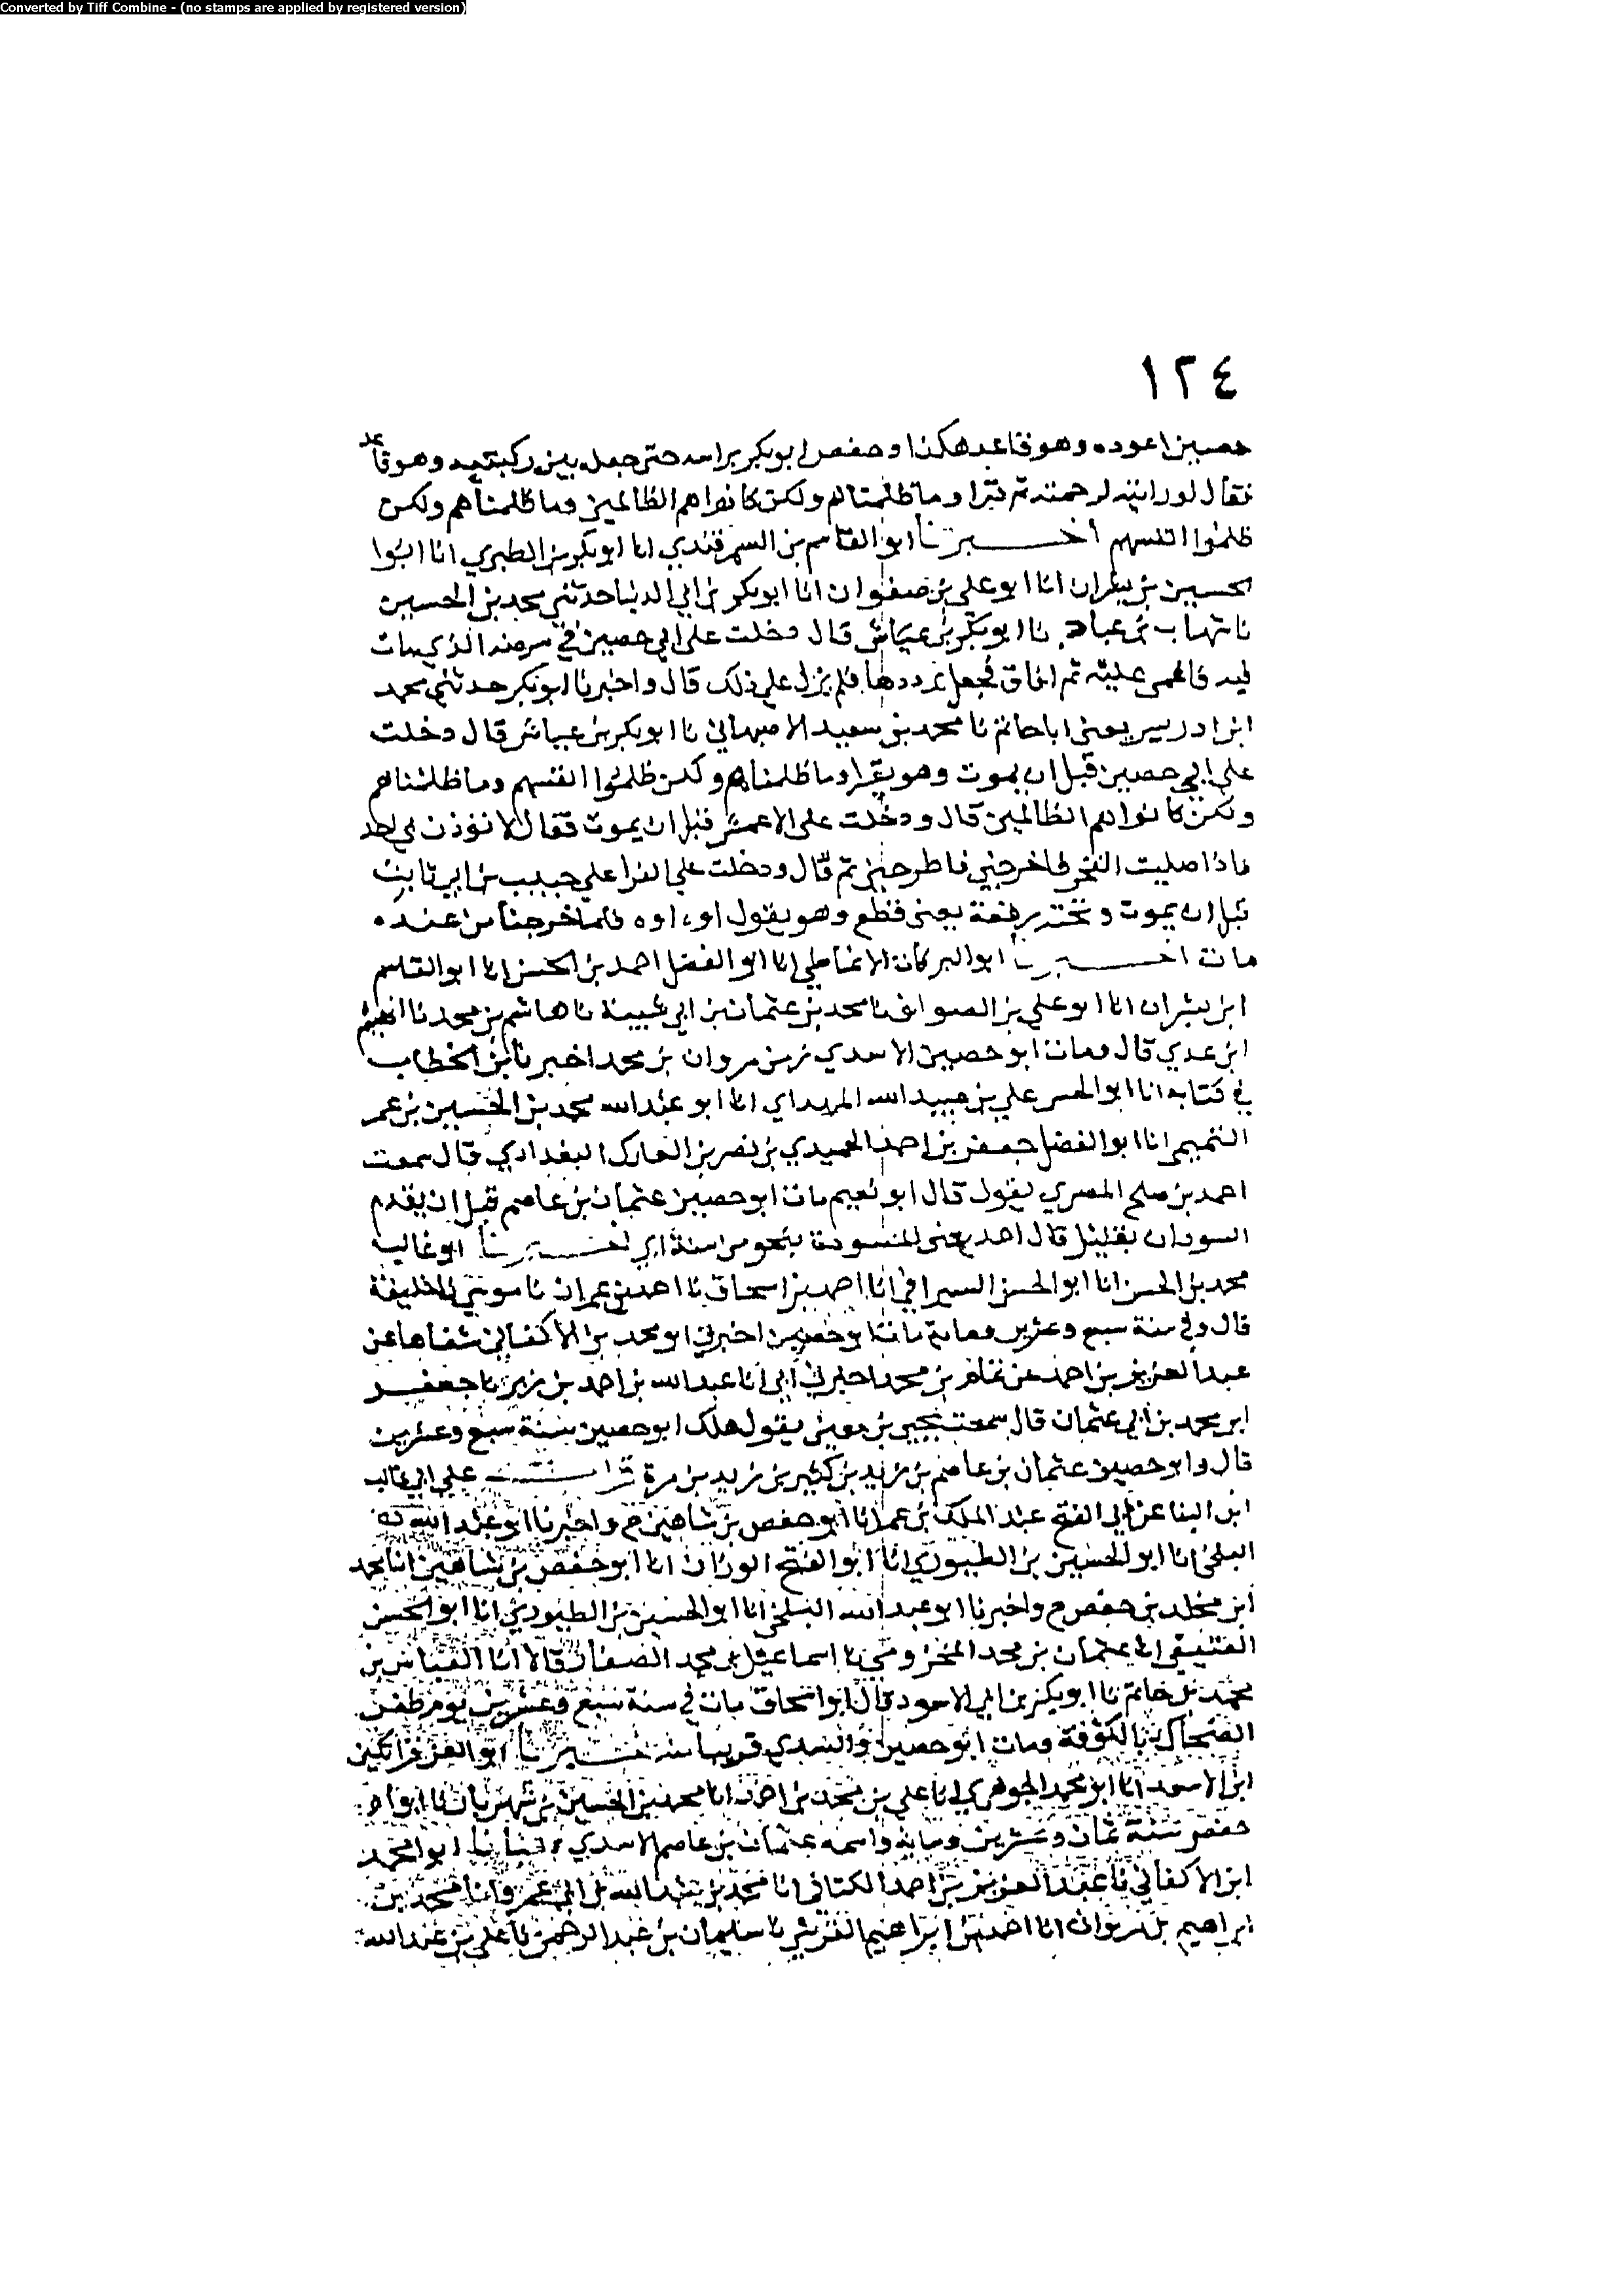 Converted by Tiff Combine - (no stamps are applied by registered version)
١٢٤
حصين اعوده وهو قاعد هكذا وخفض لي ابو بكر براسه حتى جعل بين ركبتيه وهو قاعد
فقال لو رايته لرحمته ثم قرا وما ظلمناهم ولكن كانوا هم الظالمين وما ظلمناهم ولكن
ظلموا انفسهم اخبرنا ابو القاسم بن السمرقندي انا ابو بكر بن الطبري انا ابوا
لحسين بن بشران انا ابو علي بن صفوان انا ابو بكر بن ابي الدنيا حدثني محمد بن الحسين
نا شهاب بن عباد نا ابو بكر بن عياش قال دخلت على ابي حصين في مرضه الذي مات
فيه فاغمي عليه ثم افاق فجعل يرددها فلم يزل على ذلك قال واخبرنا ابو بكر حدثني محمد
ابن ادريس يعني ابا حاتم نا محمد بن سعيد الاصبهاني نا ابو بكر بن عياش قال دخلت
على ابي حصين قبل ان يموت وهو يقرا وما ظلمناهم ولكن ظلموا انفسهم وما ظلمناهم
ولكن كانوا هم الظالمين قال ودخلت على الاعمش قبل ان يموت فقال لا تؤذن بي احد
ماذا صليت الفجر فاخرجني فاطرحني ثم قال ودخلت علي الفرا علي حبيب بن ابي ثابت
قبل ان يموت وتحته رفعة يعني قطع وهو يقول اوه اوه فلما خرجنا من عنده
مات اخبرنا ابو البركات الانماطي انا ابو الفضل احمد بن الحسن انا ابو القاسم
ابن بشران انا ابو علي بن الصواف نا محمد بن عثمان بن ابي شيبة نا هاشم بن محمد نا الهيثم
ابن عدي قال ومات ابو حصين الاسدي زمن مروان بن محمد اخبرنا ابن الخطاب
في كتابه انا ابو الحسن علي بن عبيد الله الهمداي انا ابو عبد الله محمد بن الحسين بن عمر
التميمي انا ابو الفضل جعفر بن احمد الحميدي بن نصر بن المبارك البغدادي قال سمعت
احمد بن صلح المصري يقول قال ابو نعيم مات ابو حصين عثمان بن عاصم قبل ان يقدم
السودان بقليل قال احمد يعني المسودة بنحو من سنة اي اخبرنا ابو غالب
محمد بن الحسن انا ابو الحسن السيرافي انا احمد بن اسحاق نا احمد بن عمران نا موسى نا خليفة
قال وفي سنة سبع وعشرين ومائة مات ابو حصين اخبرني ابو محمد بن الاكفاني شفاها عن
عبد العزيز بن احمد عن تمام بن محمد اخبرني ابي انا عبد الله بن احمد بن زبر نا جعفر
ابن محمد بن ابي عثمان قال سمعت يحيى بن معين يقول هلك ابو حصين سنة سبع وعشرين
قال وابو حصين عثمان بن عاصم بن زيد بن كثير بن زيد بن مرة قرات علي ابي غالب
ابن البنا عن ابي الفتح عبد الملك بن عمر انا ابو حفص بن شاهين ح واخبرنا ابو عبد الله
البلخي انا ابو الحسين بن الطيوري انا ابو الفتح الوزان انا ابو حفص بن شاهين انا محمد
ابن مخلد بن حفص ح واخبرنا ابو عبد الله البلخي انا ابو الحسين بن الطيوري انا ابو الحسن
العتيقي انا عثمان بن محمد المخزومي نا اسماعيل بن محمد الصفار قالا انا العباس بن
محمد بن حاتم نا ابو بكر بن ابي الاسود قال ابو اسحاق مات في سنة سبع وعشرين يوم ظفر
الضحاك بالكوفة ومات ابو حصين والسدي قريبا منه اخبرنا ابو العز قراتكين
ابن الاسعد انا ابو محمد الجوهري انا علي بن محمد بن احمد انا محمد بن الحسين بن شهريار نا ابو
حفص سنة ثمان وعشرين ومايه واسمه عثمان بن عاصم الاسدي انبانا ابو محمد
ابن الاكفاني نا عبد العزيز بن احمد الكتاني انا محمد بن عبد الله بن ابي عمرو انا محمد بن
ابراهيم بن مروان انا احمد بن ابراهيم القرشي نا سليمان بن عبد الرحمن نا علي بن عبد الله